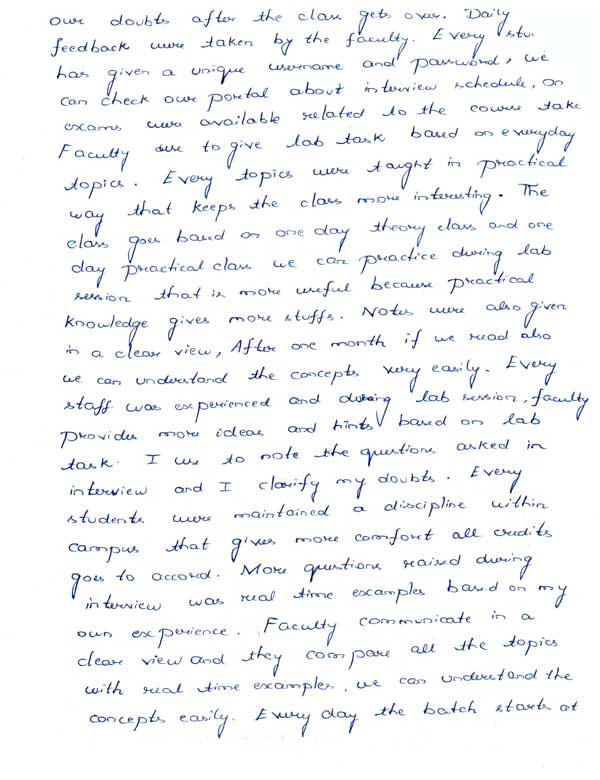 our doubts after the class gets over. Daily
feedback were taken by the faculty. Every stu.
has given a unique username and password, we
can check our portal about interview schedule, on
exams were available related to the course take
Faculty use to give lab task based on everyday
topics. Every topics were taught in practical
way that keeps the class more interesting. The
class goes based on one day theory class and one
day practical class we can practice during lab
session that is more useful because practical
knowledge gives more stuffs. Notes were also given
in a clear view, After one month if we read also
we can understand the concepts very easily. Every
staff was experienced and during lab session, faculty
provides more ideas and hints based on lab
task. I use to note the questions asked in
interview and I clarify my doubts. Every
students were maintained a discipline within
campus that gives more comfort all credits
goes to accord. More questions raised during
interview was real time examples based on my
own experience. Faculty communicate in a
clear view and they compare all the topics
with real time examples, we can understand the
concepts easily. Every day the batch starts at